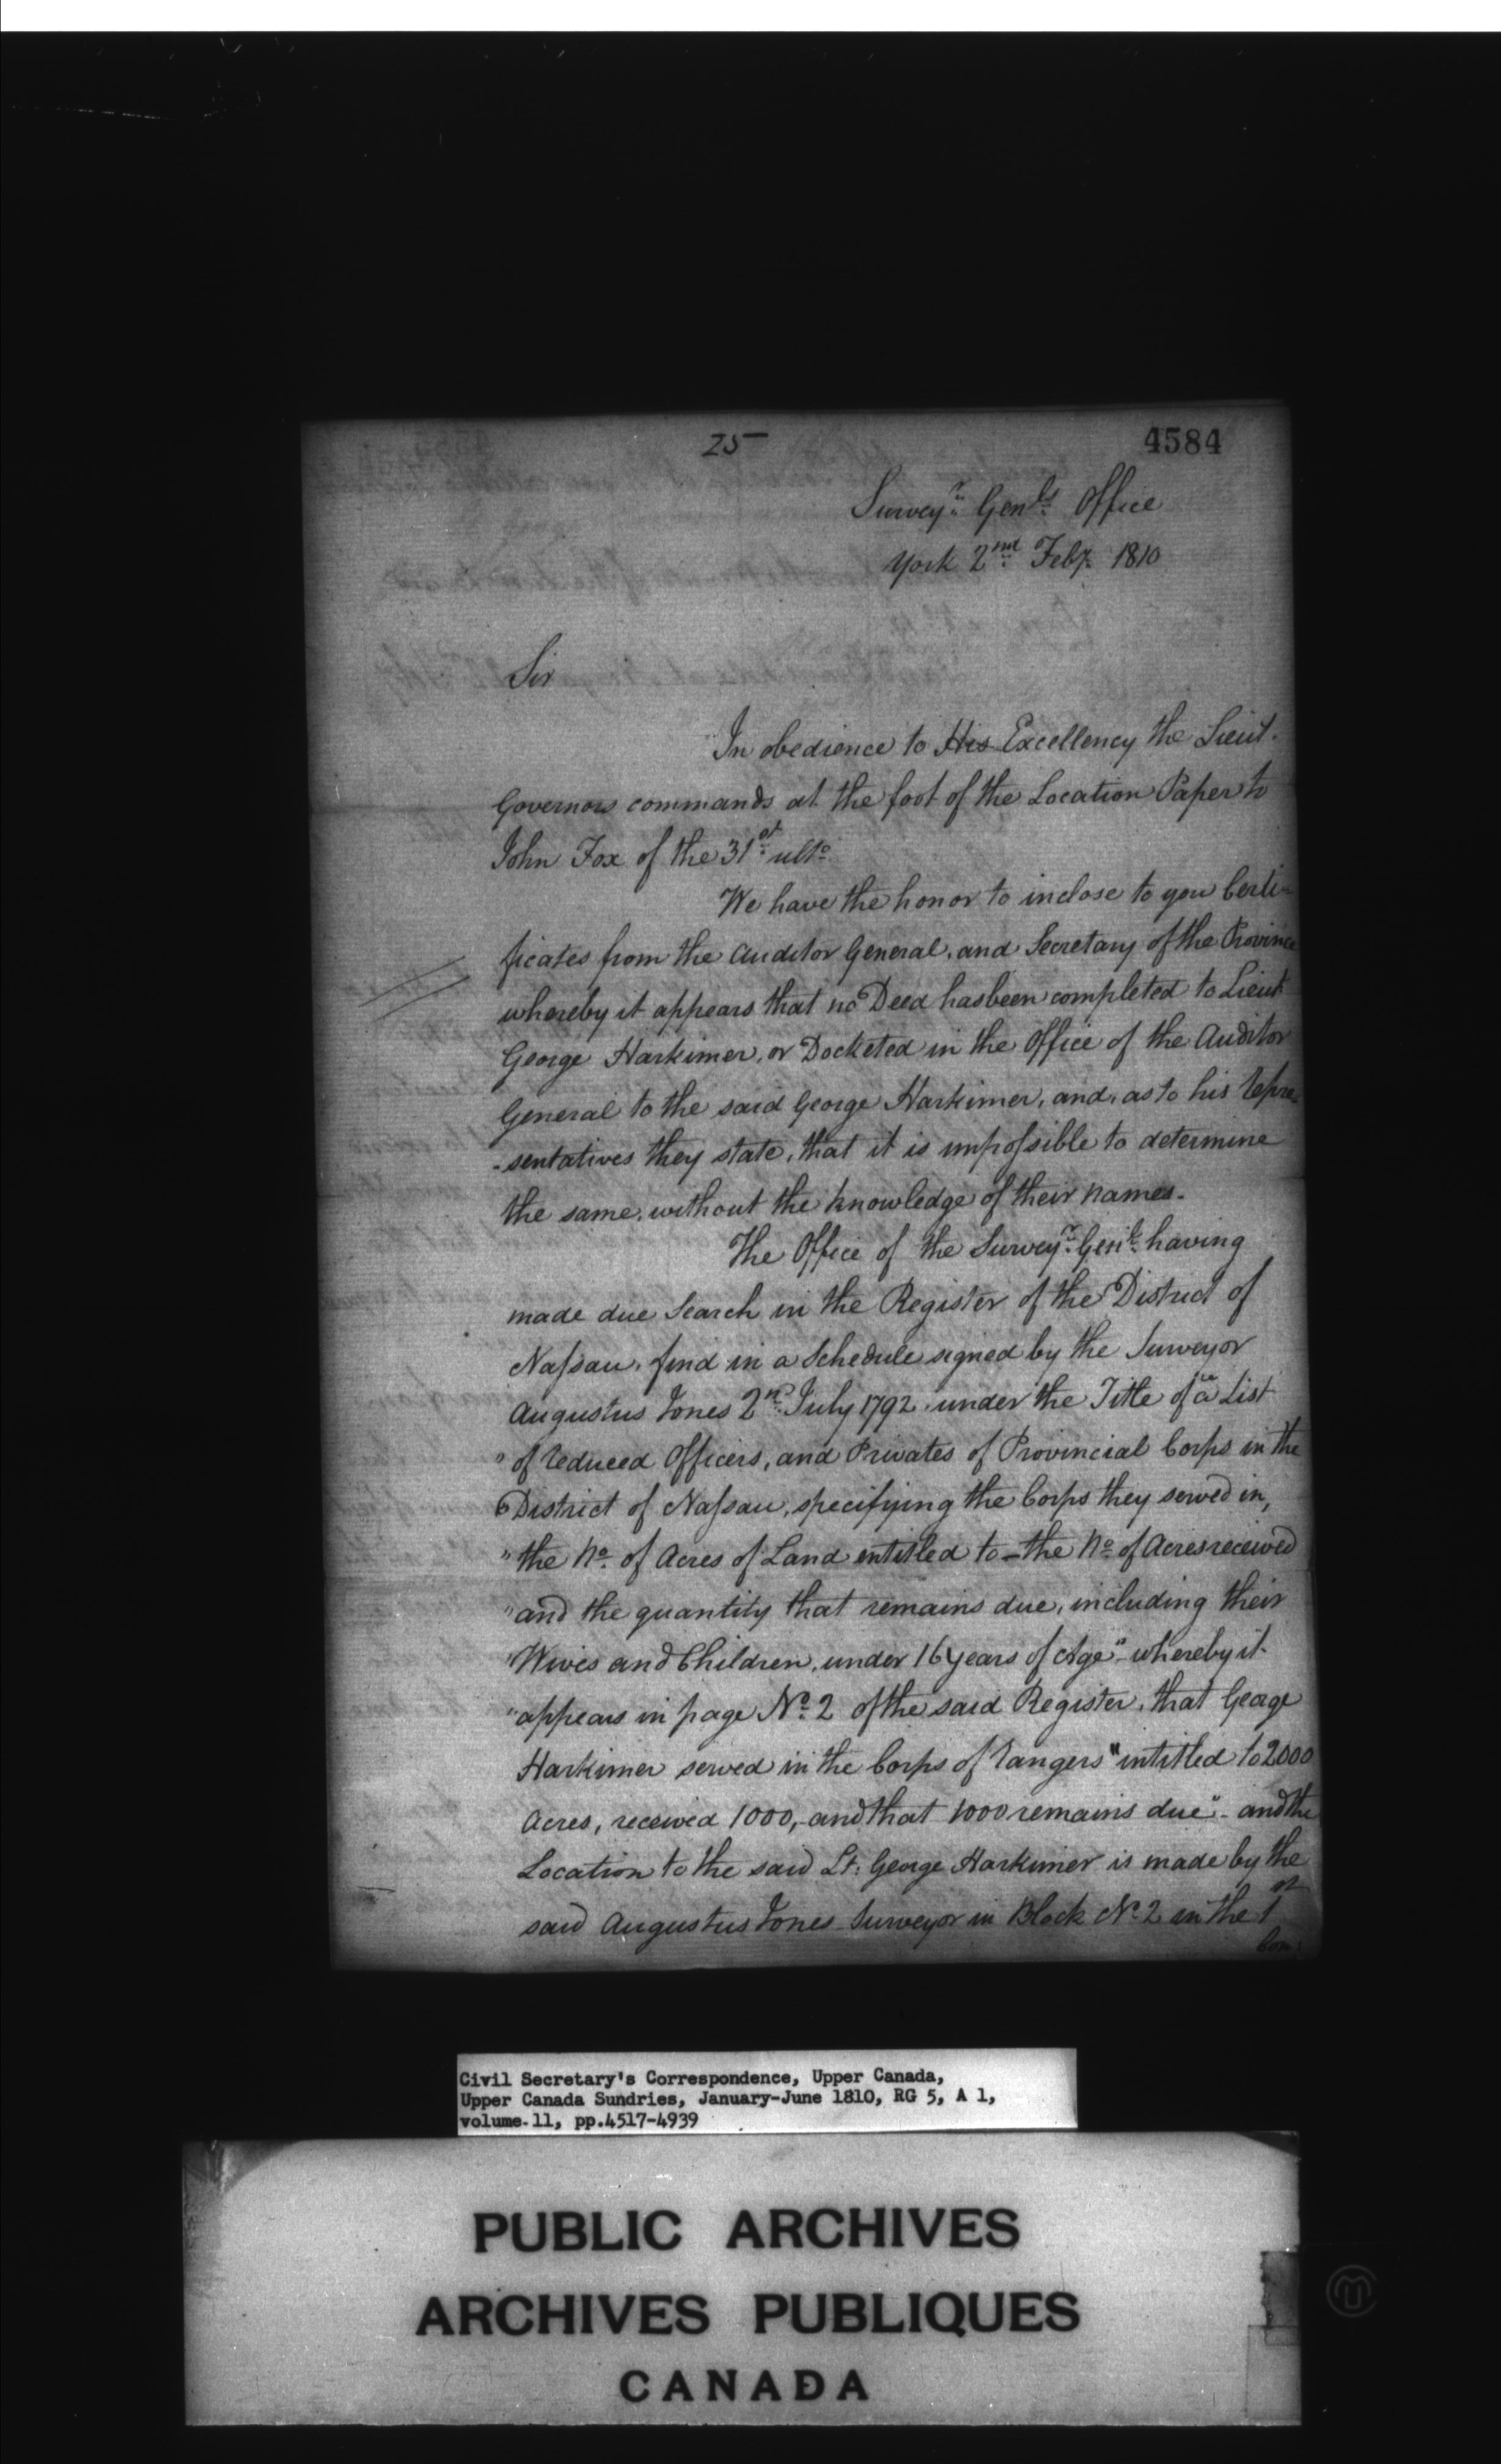 25
4584
Surveyr. Genls. Office
York 2nd Feby. 1810
Sir
In obedience to His Excellency the Lieut.
Governors commands at the foot of the Location Paper to
John Fox of the 31st ulto.
We have the honor to inclose to you Certi-
ficates from the Auditor General, and Secretary of the Province
whereby it appears that no Deed has been completed to Lieut
George Harkimer, or Docketed in the Office of the Auditor
General to the said George Harkimer, and, as to his repre-
-sentatives they state, that it is impossible to determine
the same, without the knowledge of their names.
The Office of the Surveyr. Genl. having
made due Search in the Register of the District of
Nassau, find in a Schedule signed by the Surveyor
Augustus Jones 2nd July 1792 under the Title of "a List
" of reduced Officers, and Privates of Provincial Corps in the
" District of Nassau, specifying the Corps they served in,
" the No. of Acres of Land entitled to - the No. of Acres received
" and the quantity that remains due, including their
" Wives and Children, under 16 years of Age" - whereby it
" appears in page No. 2 of the said Register, that George
Harkimer served in the Corps of Rangers "intitled to 2000
Acres, received 1000, and that 1000 remains due" - and the
Location to the said Lt. George Harkimer is made by the
said Augustus Jones Surveyor in Block No. 2 in the 1st
Con:
Civil Secretary's Correspondence, Upper Canada,
Upper Canada Sundries, January-June 1810, RG 5, A 1,
volume 11, pp.4517-4939
PUBLIC ARCHIVES
ARCHIVES PUBLIQUES
CANADA